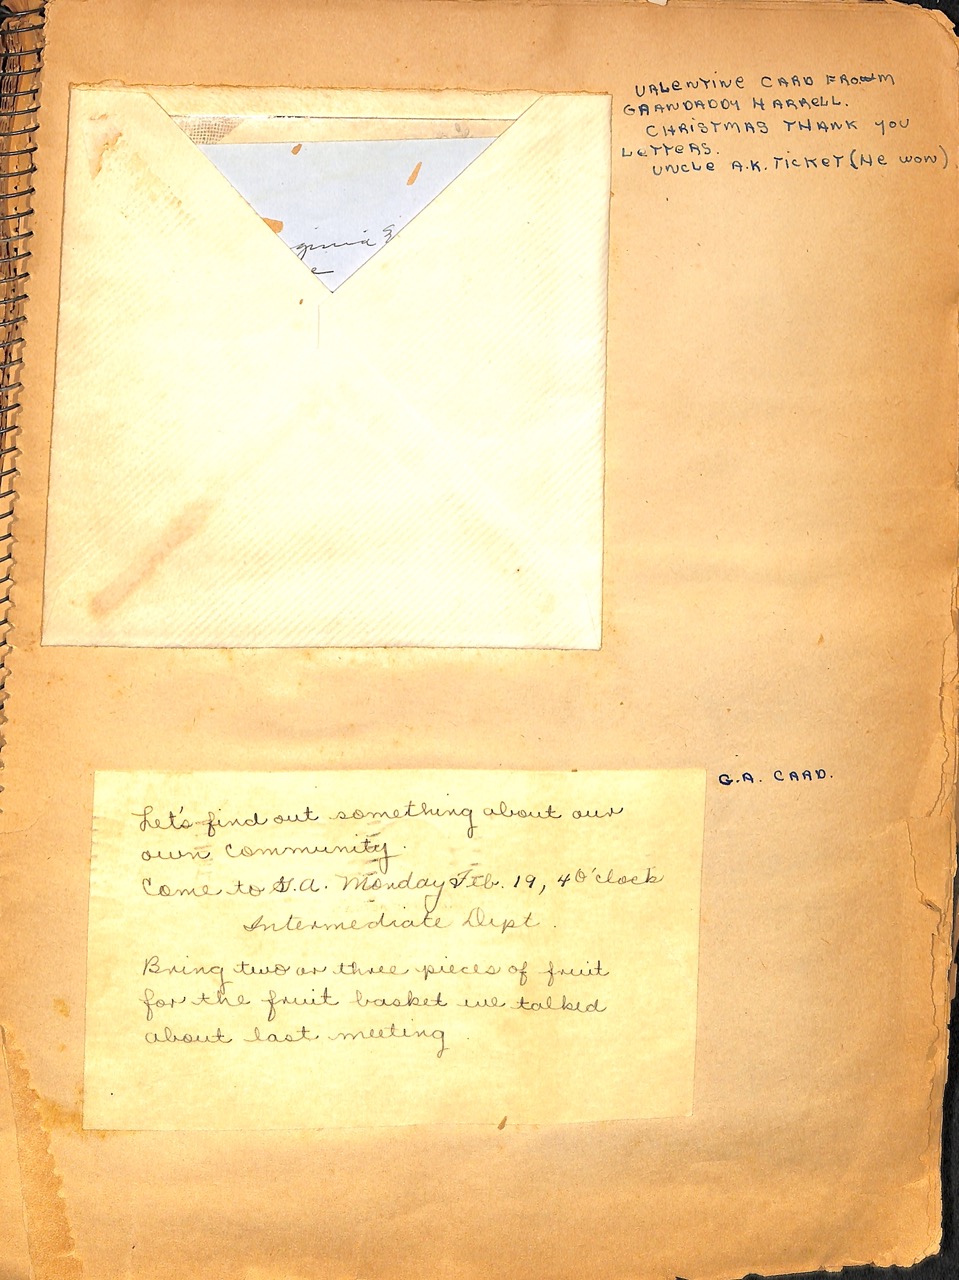 VALENTINE CARD FROM
GRANDADDY HARRELL.
CHRISTMAS THANK YOU
LETTERS.
UNCLE A.K. TICKET (HE WON)
G.A. CARD.
Let's find out something about our
own community.
Come to G.A. Monday Feb. 19, 4 O'clock
Intermediate Dept.
Bring two or three pieces of fruit
for the fruit basket we talked
about last meeting.